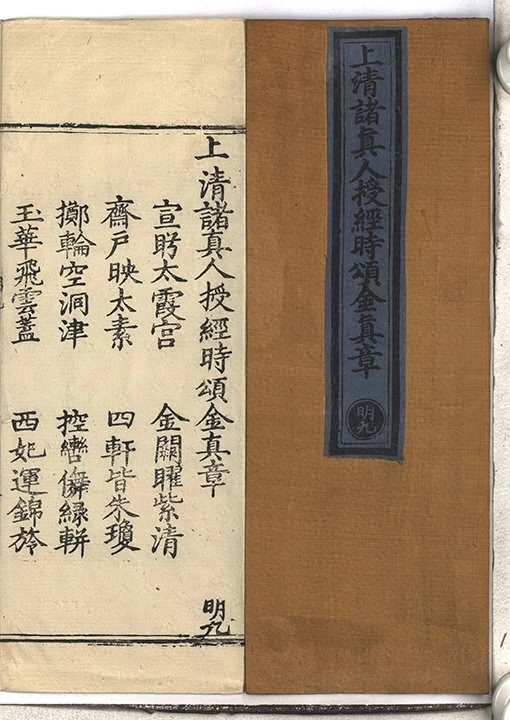 上清諸真人授經時頌金真章
明九
上清諸真人授經時頌金真章 明九
宣眄太霞宫 金闕曜紫清
齋戸映太素 四軒皆朱瓊
擲輪空洞津 控轡儛緑軿
玉華飛雲蓋 西妃運錦旍